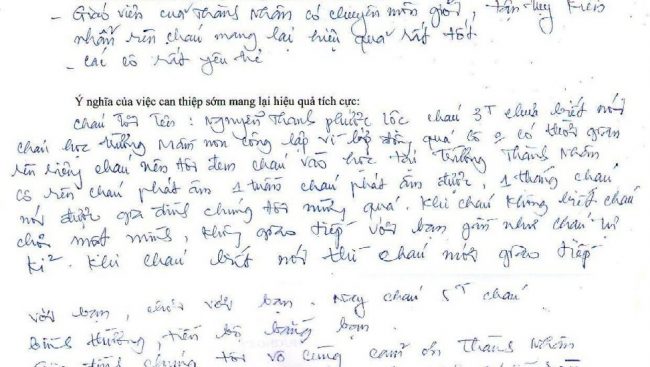 - Giáo viên của Thành Nhân có chuyên môn giỏi, tận tụy kiên
nhẫn rèn cháu mang lại hiệu quả rất tốt.
- Các cô rất yêu trẻ
Ý nghĩa của việc can thiệp sớm mang lại hiệu quả tích cực:
Cháu Tôi Tên: Nguyễn Thành Phước Lộc cháu 3T chưa biết nói
cháu học trường Mầm non công lập vì lớp đông quá cô o có thời gian
rèn riêng cháu nên tôi đem cháu vào học tại Trường Thành Nhân
cô rèn cháu phát âm 1 tuần cháu phát âm được, 1 tháng cháu
nói được gia đình chúng tôi mừng quá. Khi cháu không biết cháu
chơi một mình, không giao tiếp với bạn gần như cháu bị
kỉ². Khi cháu biết nói thì cháu mới giao tiếp
với bạn, chơi với bạn. Nay cháu 5T cháu
Bình thường, tiến bộ bằng bạn
Gia đình chúng tôi vô cùng cảm ơn Thành Nhân